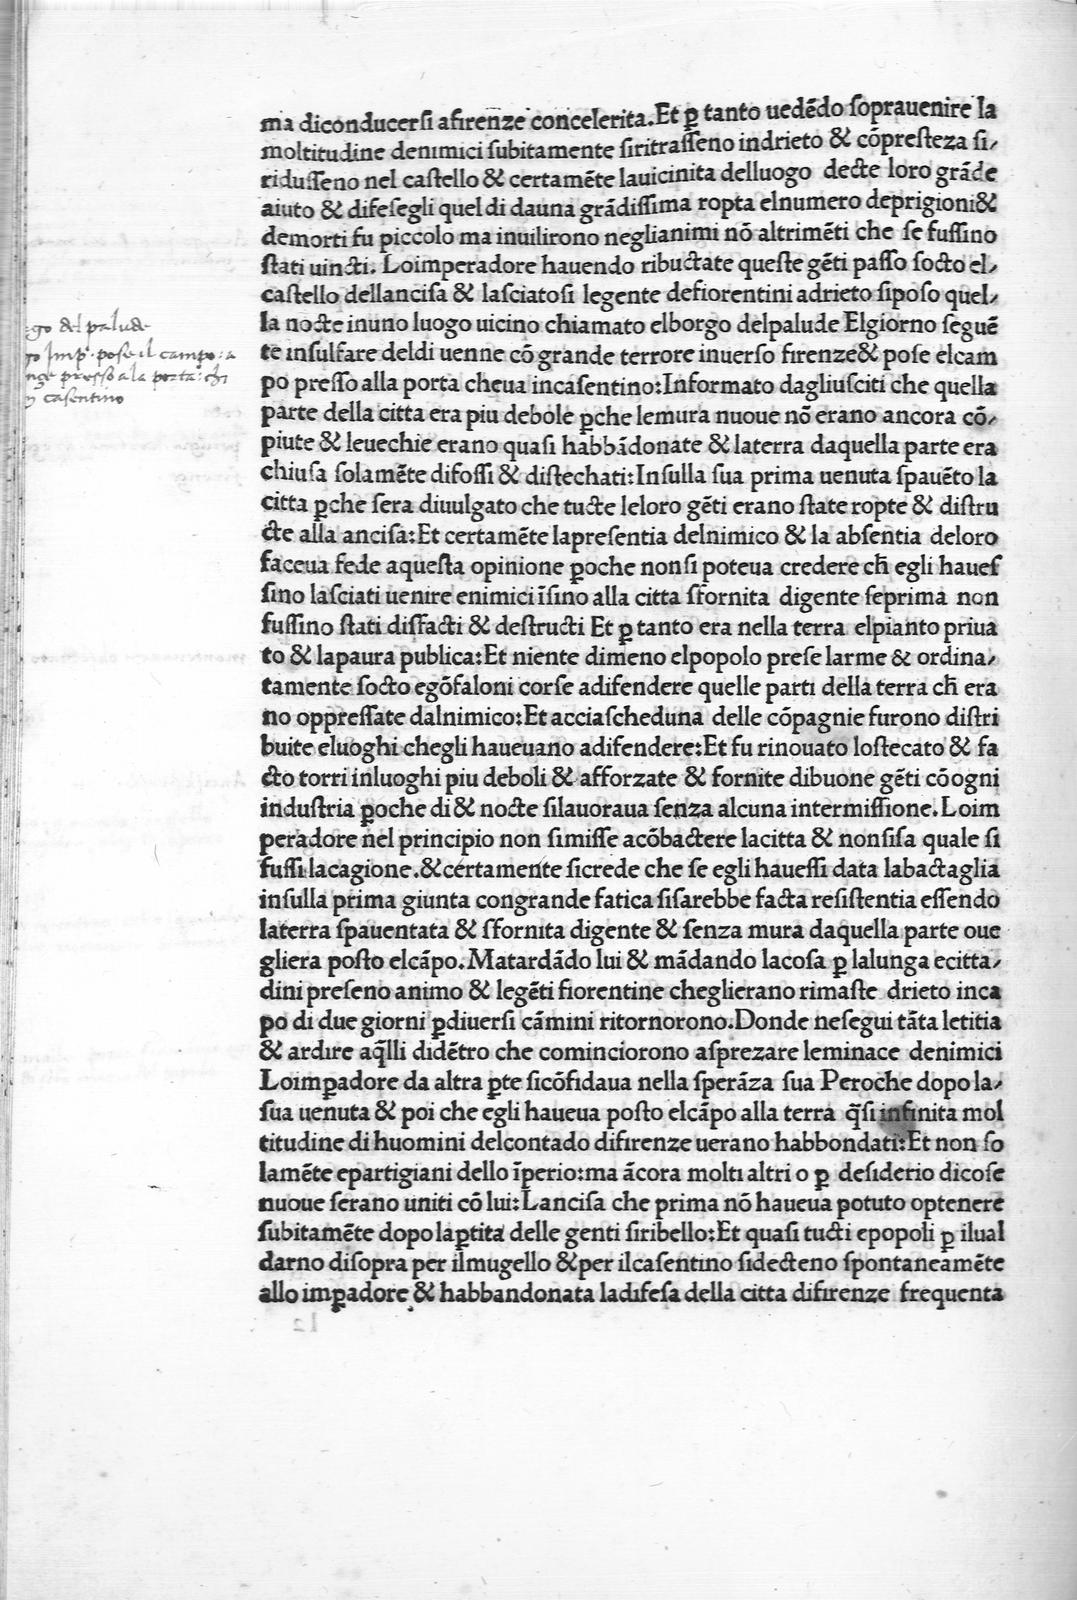 ma diconducerſi afirenze concelerita. Et ꝑ tanto uedẽdo ſoprauenire la
moltitudine denimici ſubitamente ſiritraſſeno indrieto & cõpreſteza ſi⸗
riduſſeno nel caſtello & certamẽte lauicinita delluogo decte loro grãde
aiuto & difeſegli quel di dauna grãdiſſima ropta elnumero deprigioni&
demorti fu piccolo ma inuilirono neglianimi nõ altrimẽti che ſe fuſſino
ſtati uincti. Loimperadore hauendo ributtate queſte gẽti paſſo ſocto el⸗
caſtello dellanciſa & laſciatoſi legente defiorentini adrieto ſipoſo quel⸗
la nocte inuno luogo uicino chiamato elborgo delpalude Elgiorno ſeguẽ
te inſulfare deldi uenne cõ grande terrore inuerſo firenze& poſe elcam
po preſſo alla porta cheua incaſentino: Informato dagliuſciti che quella
parte della citta era piu debole ꝑche lemura nuoue nõ erano ancora cõ⸗
piute & leuechie erano quaſi habbãdonate & laterra daquella parte era
chiuſa ſolamẽte difoſſi & diſtechati: Inſulla ſua prima uenuta ſpauẽto la
citta ꝑche ſera diuulgato che tucte leloro gẽti erano ſtate ropte & diſtru
cte alla anciſa: Et certamẽte lapreſentia delnimico & la abſentia deloro
faceua fede aqueſta opinione ꝑoche nonſi poteua credere ch̃ egli haueſ
ſino laſciati uenire enimici ĩſino alla citta ſfornita digente ſeprima non
fuſſino ſtati disfacti & deſtructi Et ꝑ tanto era nella terra elpianto priua
to & lapaura publica: Et niente dimeno elpopolo preſe larme & ordina⸗
tamente ſocto egõfaloni corſe adifendere quelle parti della terra ch̃ era
no oppreſſate dalnimico: Et acciaſcheduna delle cõpagnie furono diſtri
buite eluoghi chegli haueuano adifendere: Et fu rinouato loſtecato & fa
cto torri inluoghi piu deboli & afforzate & fornite dibuone gẽti cõ ogni
induſtria ꝑoche di & nocte ſilauoraua ſenza alcuna intermiſſione. Loim
peradore nel principio non ſimiſſe acõbactere lacitta & nonſiſa quale ſi
fuſſi lacagione. & certamente ſicrede che ſe egli haueſſi data labactaglia
inſulla prima giunta congrande fatica ſiſarebbe facta reſiſtentia eſſendo
laterra ſpauentata & ſfornita digente & ſenza mura daquella parte oue
gliera poſto elcãpo. Matardãdo lui & mãdando lacoſa ꝑ lalunga ecitta⸗
dini preſeno animo & legẽti fiorentine cheglierano rimaſte drieto inca
po di due giorni ꝑdiuerſi cãmini ritornorono. Donde neſegui tãta letitia
& ardire aq̃lli didẽtro che cominciorono aſprezare leminace denimici
Loimꝑadore da altra ꝑte ſicõfidaua nella ſperãza ſua Peroche dopo la⸗
ſua uenuta & poi che egli haueua poſto elcãpo alla terra q̃ſi infinita mol
titudine di huomini delcontado difirenze uerano habbondati: Et non ſo
lamẽte epartigiani dello ĩperio: ma ãcora molti altri o ꝑ deſiderio dicoſe
nuoue ſerano uniti cõ lui: Lanciſa che prima nõ haueua potuto optenere
ſubitamẽte dopo laꝑtita delle genti ſiribello: Et quaſi tucti epopoli ꝑ ilual
darno diſopra per ilmugello & per ilcaſentino ſidecteno ſpontaneamẽte
allo imꝑadore & habbandonata ladifeſa della citta difirenze frequenta
go del palude
Imp. poſe il campo. a
preſſo a la porta: ch̃
caſentino